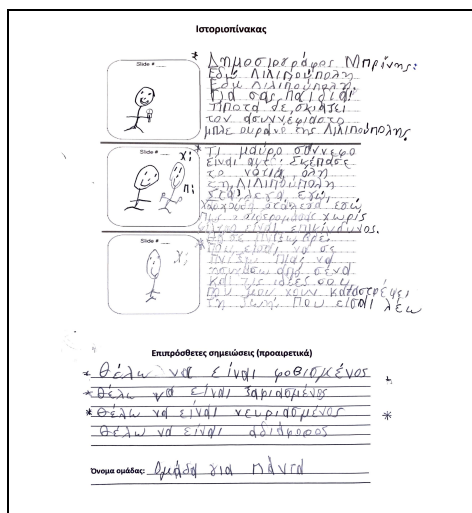 Ιστοριοπίνακας
Slide # __
* Δημοσιογράφος Μπρίνης:
Εδώ Λιλιπούπολη
Εδώ Λιλιπούπολη.
Γιά σας παιδιά!
Τίποτα δε σκιάζει
τον ασυννέφιαστο
μπλε ουρανό της Λιλιπούπολης.
Slide # __
χ;
π;
* Τι μαύρο σύννεφο
είναι αυτό; Σκέπασε
το νότια όλη
τη Λιλιπούπολη
εγώ,
εγώ
χωρίς
είναι επικίνδυνος.
Slide # __
χ;
να σε
να
από σένα
και τις ιδέες σου
που μου χουν καταστρέψει
τη ζωή. Που είσαι λέω
Επιπρόσθετες σημειώσεις (προαιρετικά)
* Θέλω να είναι φοβισμένος *
* Θέλω να είναι ζαριασμένος
* Θέλω να είναι νευριασμένος *
Θέλω να είναι αδιάφορος
Όνομα ομάδας: Ομάδα για πάντα